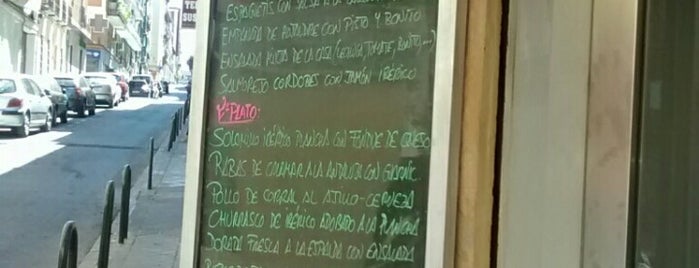 TE
SUS
ESPAGUETIS CON SALSA A LA
ENSALADA DE AHUMADOS CON PISTO Y BONITO
ENSALADA MIXTA DE LA CASA (LECHUGA, TOMATE, BONITO, ---)
SALMOREJO CORDOBES CON JAMÓN IBÉRICO
2º PLATO:
SOLOMILLO IBÉRICO PLANCHA CON FONDUE DE QUESO
RABAS DE CALAMAR A LA ANDALUZA CON GUARNIC.
POLLO DE CORRAL AL AJILLO-CERVEZA
CHURRASCO DE IBÉRICO ADOBADO A LA PLANCHA
DORADA FRESCA A LA ESPALDA CON ENSALADA